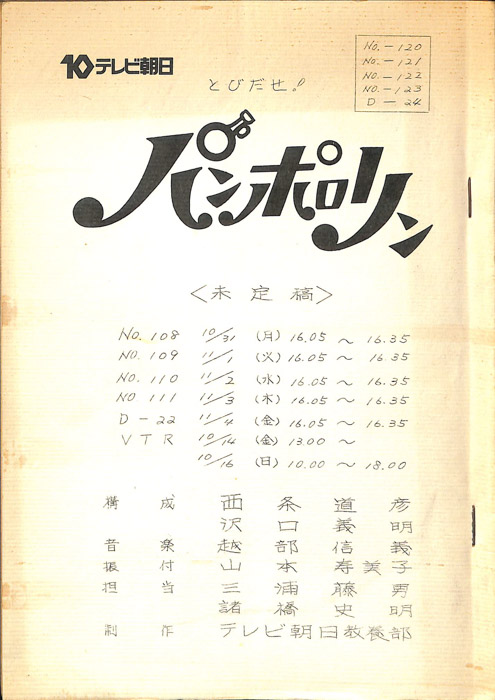 10テレビ朝日
No.-120
No.-121
No.-122
No.-123
D-24
とびだせ!!
パンポロリン
<未定稿>
No. 108 10/31 (月) 16.05 ~ 16.35
No. 109 11/1 (火) 16.05 ~ 16.35
No. 110 11/2 (水) 16.05 ~ 16.35
NO 111 11/3 (木) 16.05 ~ 16.35
D-22 11/4 (金) 16.05 ~ 16.35
VTR 10/14 (金) 13.00 ~
10/16 (日) 10.00 ~ 18.00
構成 西条道彦
沢口義明
音楽 越部信義
振付 山本寿美子
担当 三浦藤男
諸橋史明
制作 テレビ朝日教養部